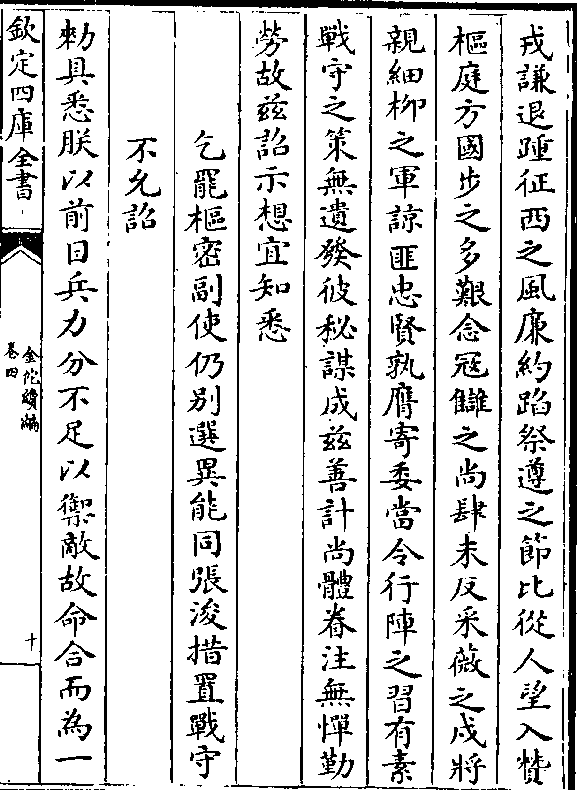 戎謙退踵征西之風廉約蹈祭遵之節比從人望入贊
樞庭方國步之多艱念寇讎之尚肆未反采薇之戍將
親細柳之軍諒匪忠賢孰膺寄委當令行陣之習有素
戰守之策無遺發彼秘謀成兹善計尚體眷注無憚勤
勞故兹詔示想宜知悉
乞罷樞密副使仍别選異能同張浚措置戰守
不允詔
勅具悉朕以前日兵力分不足以禦敵故命合而為一
欽定四庫全書
金佗續編
卷四
十